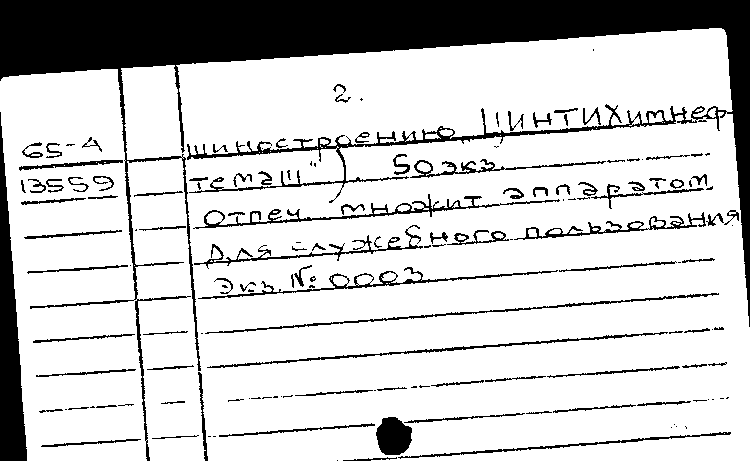 2.
65-А
13559
шиностроению „ЦИНТИХимнеф-
темаш"). 50 экз.
Отпеч. множит аппаратом
Для служебного пользования
Экз. №: 0003